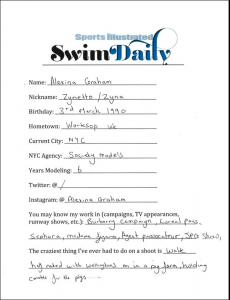 Sports Illustrated
Swim Daily
Name: Alexina Graham
Nickname: Zynette / Zyna
Birthday: 3rd March 1990
Hometown: Worksop UK
Current City: NYC
NYC Agency: Society models
Years Modeling: 6
Twitter: @ /
Instagram: @ Alexina Graham
You may know my work in (campaigns, TV appearances,
runway shows, etc.) Burberry campaign, Loreal Paris,
Sephora, madame figaro, Agent provocateur, JPG show,
The craziest thing I've ever had to do on a shoot is walk
naked with wellingtons on in a pig farm, holding
carrots for the pigs ....